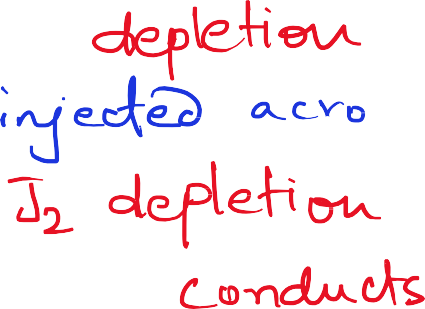 depletion
injected acro
J₂ depletion
conducts